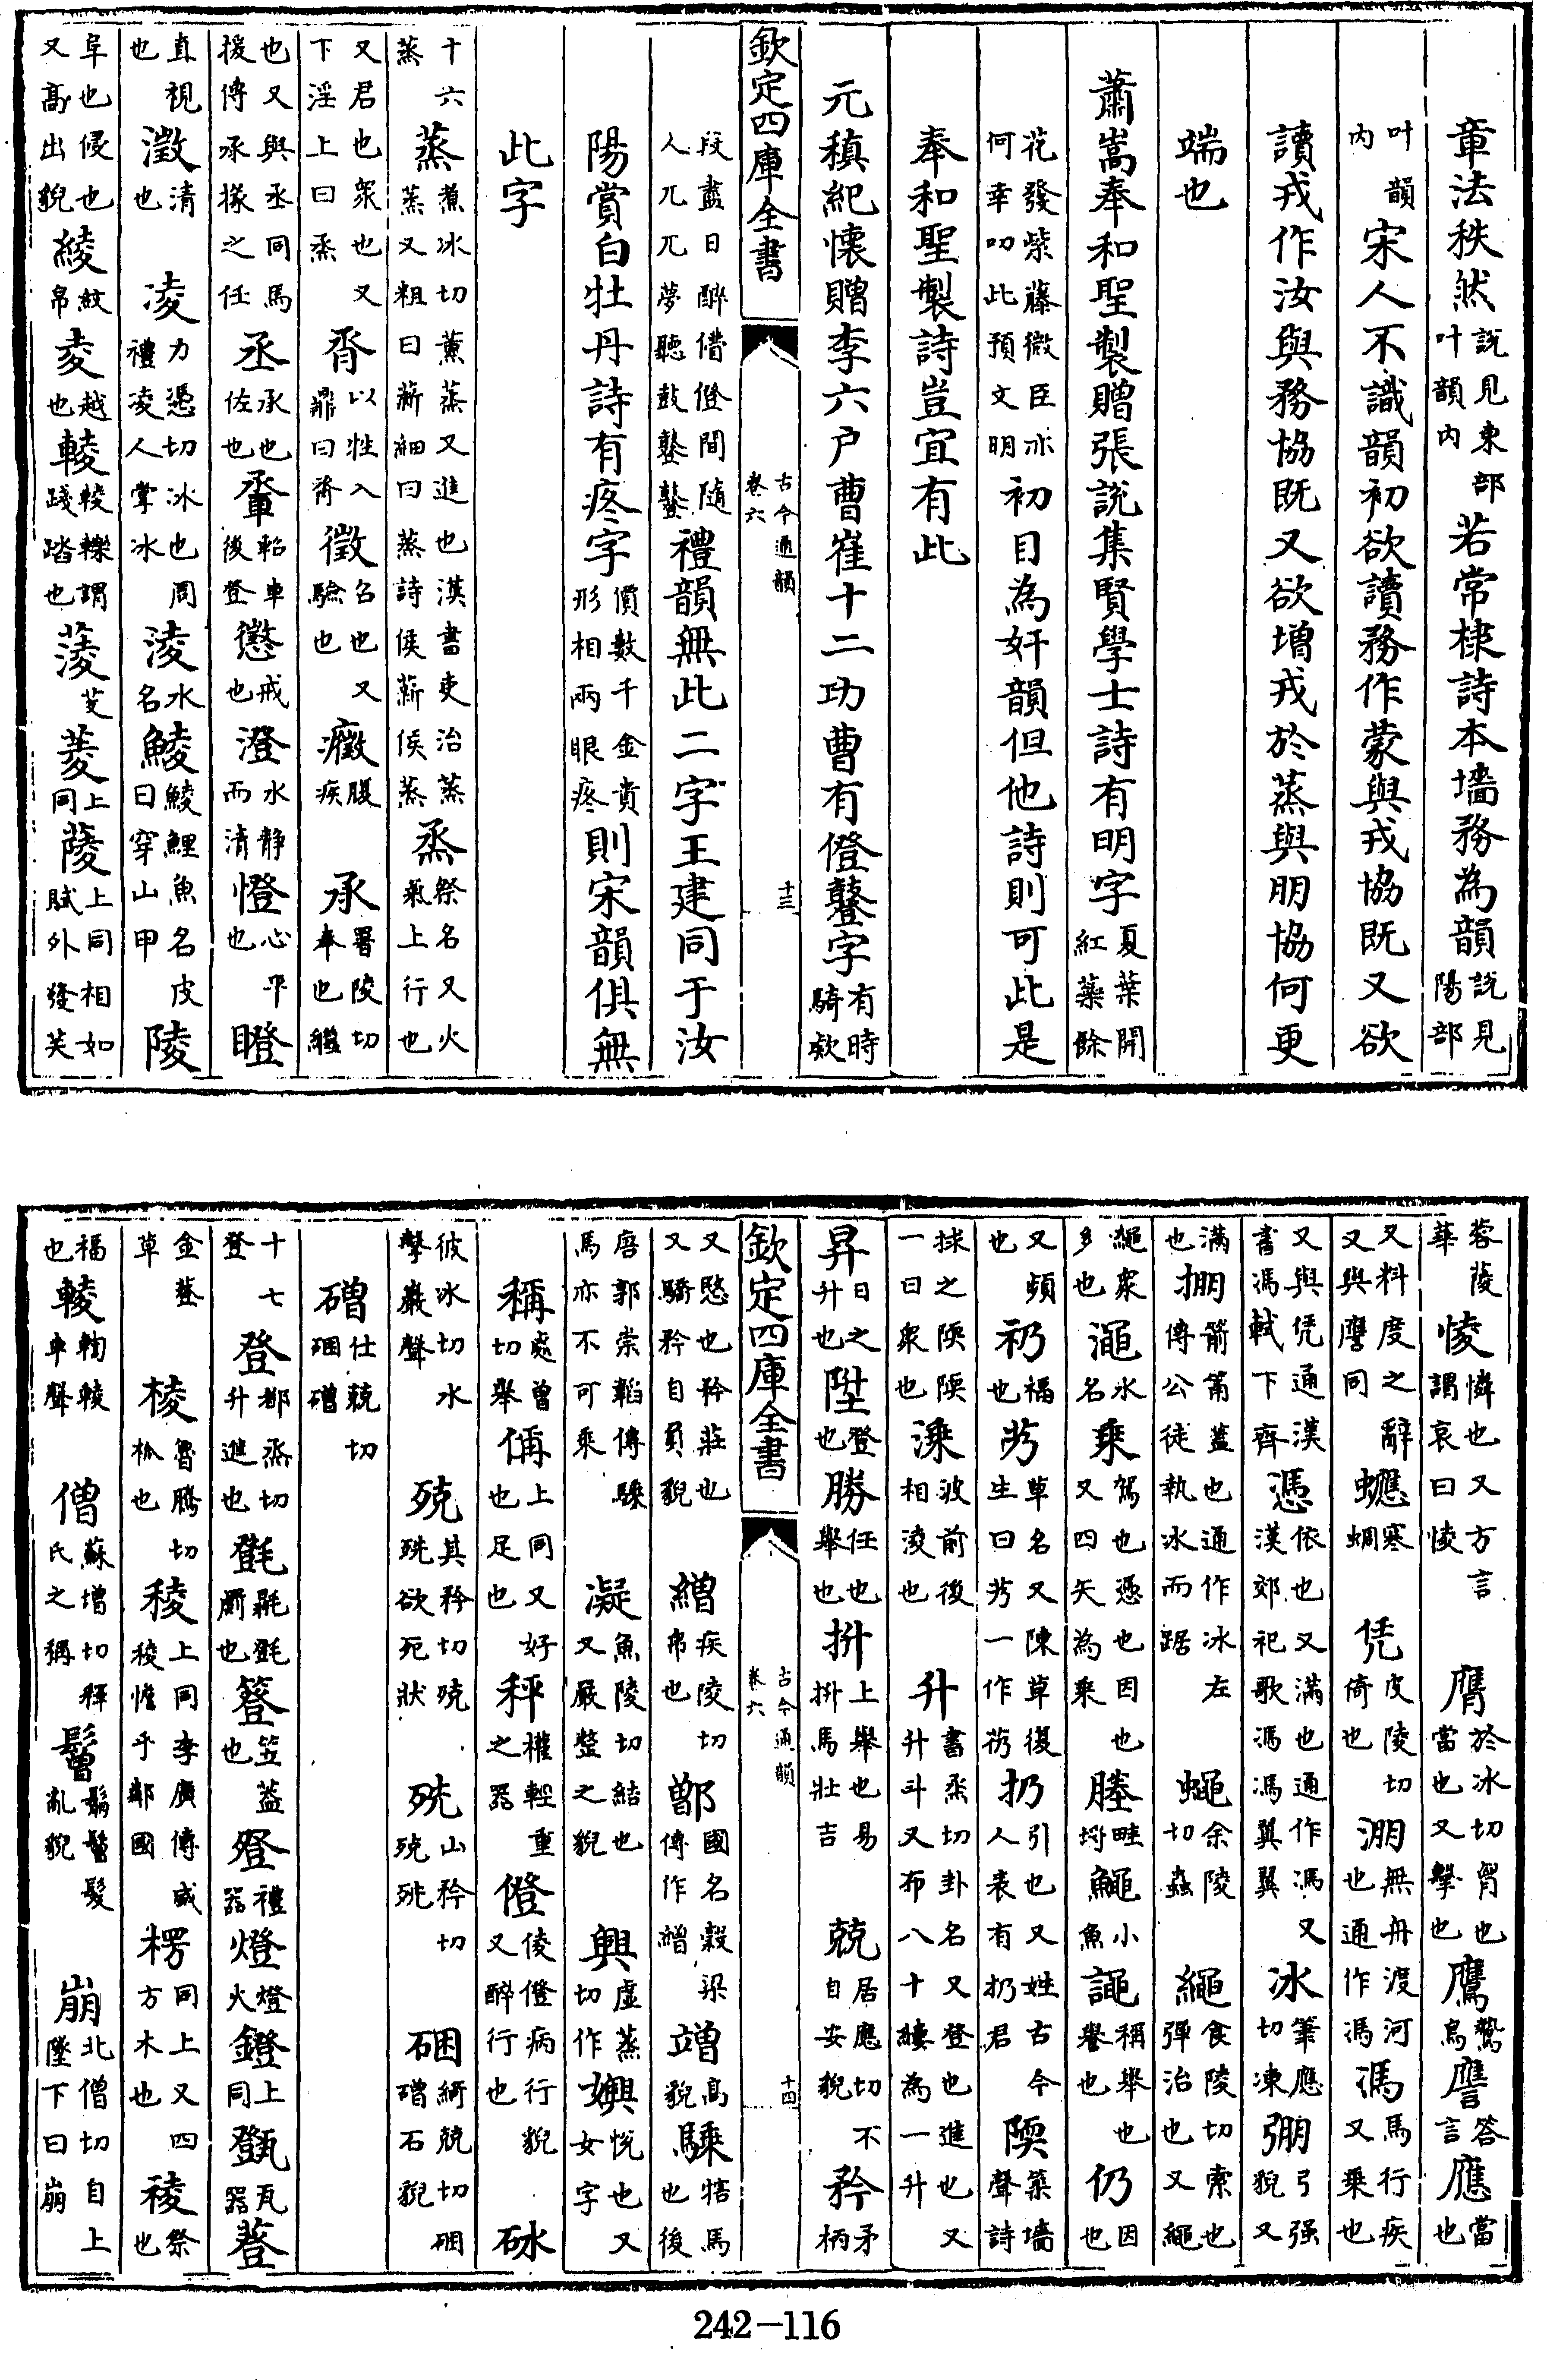 章法秩然説見東部叶韻内若常棣詩本墻務為韻説見陽部
叶韻内宋人不識韻初欲讀務作蒙與戎協既又欲
讀戎作汝與務協既又欲增戎於蒸與朋協何更
端也
蕭嵩奉和聖製贈張説集賢學士詩有明字夏葉開紅藥餘
花發紫藤微臣亦何幸叨此預文明初目為奸韻但他詩則可此是
奉和聖製詩豈宜有此
元稹紀懷贈李六户曹崔十二功曹有僜鼞字有時騎欵
欽定四庫全書
古今通韻卷六
十三
段盡日醉僜間隨人兀兀夢聽鼓鼞鼞禮韻無此二字王建同于汝
陽賞白牡丹詩有疼字價數千金貴形相兩眼疼則宋韻俱無
此字
十六蒸蒸煮冰切薰蒸又進也漢書吏治蒸蒸又粗曰薪細曰蒸詩侯薪侯蒸烝祭名又火氣上行也
又君也衆也又下淫上曰烝脀以牲入鼎曰脀徵召也又驗也癥腹疾承署陵切奉也繼
也又與丞同馬援傳承掾之任丞承也佐也軬軺車後登懲戒也澄水静而清憕心平也瞪
直視也澂清也凌力憑切冰也周禮凌人掌冰淩水名鯪鯪鯉魚名皮曰穿山甲陵
阜也侵也又高出貌綾紋帛夌越也輘輘轢謂踐踏也蔆芰菱上同䔖上同相如賦外發芙
蓉䔖華㥄憐也又方言謂哀曰㥄膺於冰切胷也當也又擊也鷹鷙鳥譍答言應當也
又料度之辭又與譍同蠯寒蜩凭皮陵切倚也淜無舟渡河也通作馮馮馬行疾又乘也
又與凭通漢書馮軾下齊憑依也又滿也通作馮漢郊祀歌馮馮翼翼又冰筆應切凍弸弓强貌又
滿也掤箭筩蓋也通作冰左傳公徒執冰而踞蠅余陵切蟲繩食陵切索也彈治也又繩
繩衆多也澠水名乘駕也憑也因也又四矢為乘塍畦埒鱦小魚譝稱舉也譽也仍因也
又頻也礽福也艿草名又陳草復生曰艿一作芿扔引也又姓古今人表有扔君陾築墻聲詩
捄之陾陾一曰衆也溗波前後相淩也升書烝切卦名又登也進也又升斗又布八十縷為一升
昇日之升也陞登也勝任也舉也拼上舉也易拼馬壯吉兢居應切不自安貌矜矛柄
欽定四庫全書
古今通韻卷六
十四
又愍也矜莊也又驕矜自負貌繒疾陵切帛也鄫國名穀梁傳作繒竲高貌騬犗馬也後
唐郭崇韜傳騬馬亦不可乘凝魚陵切結也又嚴整之貌興虚蒸切作嬹悦也又女字
稱處曾切舉偁上同又好也足也秤權輕重之器僜倰僜病行貌又醉行也砯
彼冰切水擊巖聲殑其矜切殑殑欲死狀殑山矜切殑殑硱綺兢切硱磳石貌
磳仕兢切硱磳
十七登登都烝切升進也㲪㲲㲪罽也簦笠蓋也豋禮器燈燈火鐙上同㽅瓦器䔲
金䔲草棱魯騰切柧也稜上同李廣傳威稜憺乎鄰國楞同上又四方木也祾祭也
福也輘䡘輘車聲僧蘇增切釋氏之稱鬙鬅鬙髮亂貌崩北僧切自上墜下曰崩
242-116